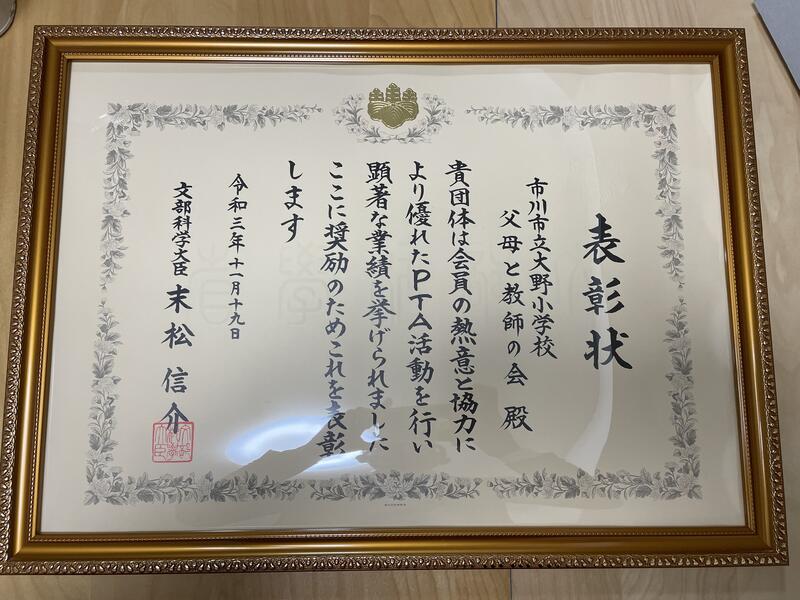 表彰状
市川市立大野小学校
父母と教師の会 殿
貴団体は会員の熱意と協力に
より優れたPTA活動を行い
顕著な業績を挙げられました
ここに奨励のためこれを表彰
します
令和三年十一月十九日
文部科学大臣 末松信介